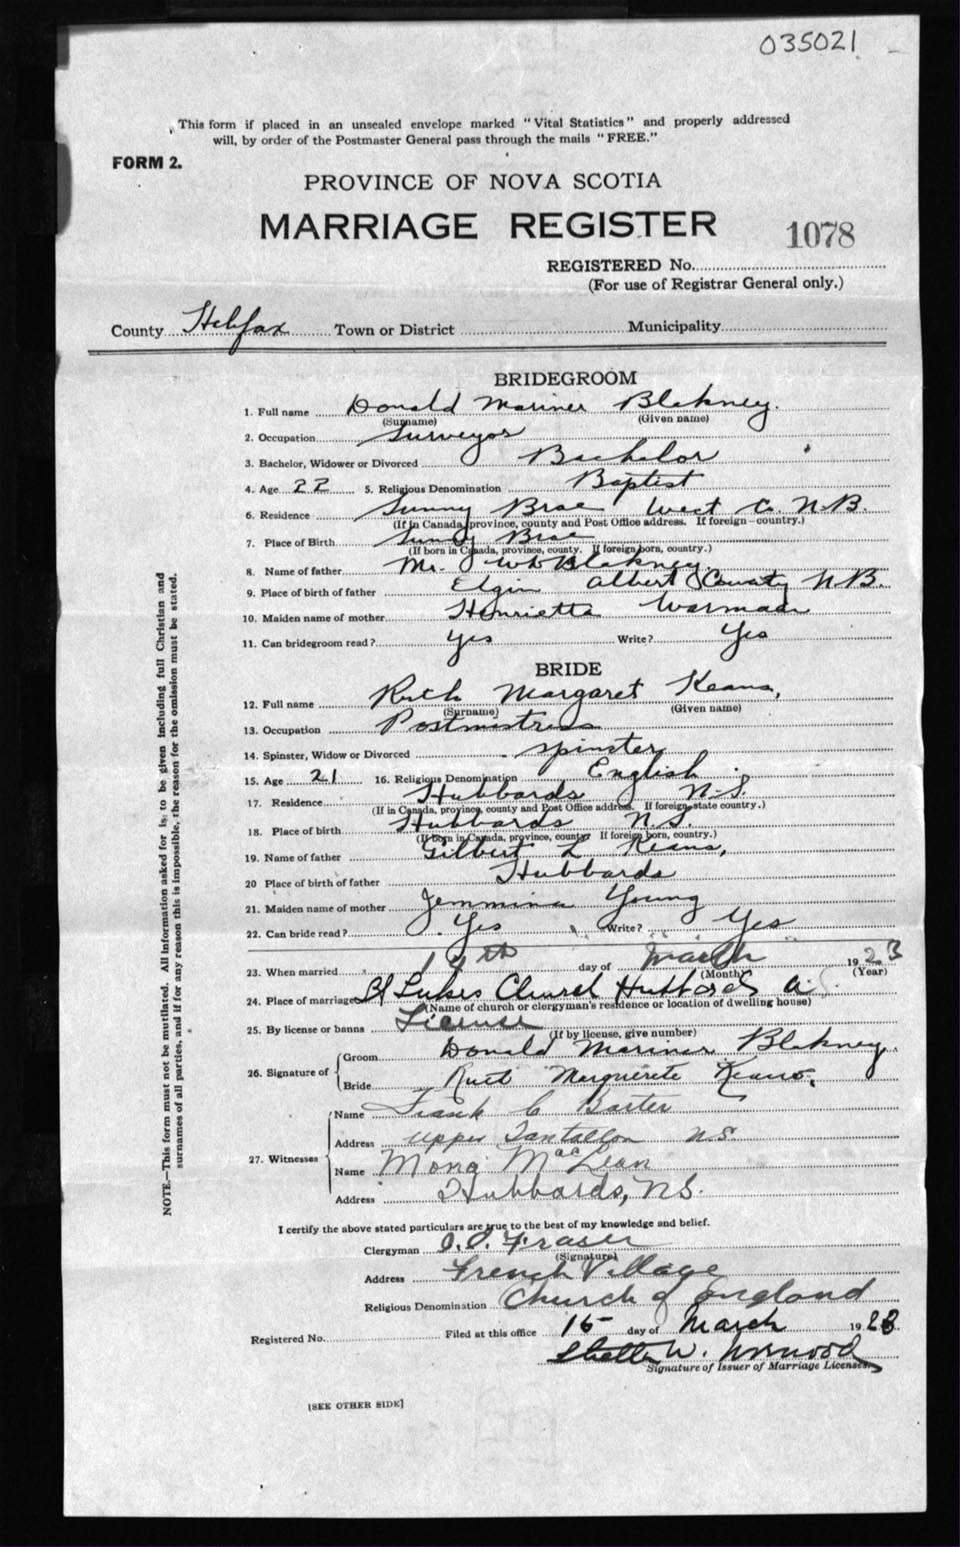 035021
This form if placed in an unsealed envelope marked "Vital Statistics" and properly addressed
will, by order of the Postmaster General pass through the mails "FREE."
FORM 2.
PROVINCE OF NOVA SCOTIA
MARRIAGE REGISTER
1078
REGISTERED No.
(For use of Registrar General only.)
County Halifax Town or District Municipality
BRIDEGROOM
1. Full name Donald Mariner Blakney.
(Surname) (Given name)
2. Occupation Surveyor
3. Bachelor, Widower or Divorced Bachelor
4. Age 22 5. Religious Denomination Baptist
6. Residence Sunny Brae West Co. N.B.
(If in Canada, province, county and Post Office address. If foreign—country.)
7. Place of Birth Sunny Brae
(If born in Canada, province, county. If foreign born, country.)
8. Name of father Mr. Blakney.
9. Place of birth of father Elgin Albert County N.B.
10. Maiden name of mother Henrietta
11. Can bridegroom read? yes Write? Yes
BRIDE
12. Full name Ruth Margaret Keans,
(Surname) (Given name)
13. Occupation Postmistress
14. Spinster, Widow or Divorced spinster,
15. Age 21 16. Religious Denomination English
17. Residence Hubbards N.S.
(If in Canada, province, county and Post Office address. If foreign-state country.)
18. Place of birth Hubbards N.S.
(If born in Canada, province, county If foreign born, country.)
19. Name of father Gilbert L Keans,
20 Place of birth of father Hubbards
21. Maiden name of mother Jemmina Young
22. Can bride read? Yes Write? Yes
23. When married day of March 1923
(Month) (Year)
24. Place of marriage St Lukes Church Hubbards
(Name of church or clergyman's residence or location of dwelling house)
25. By license or banns License
(If by license, give number)
26. Signature of Groom Donald Mariner Blakney.
Bride Ruet Merguerete Keans,
27. Witnesses
Name Frank C Barter
Address Upper Tantallon N.S.
Name Mona MacLean
Address Hubbards, N.S.
I certify the above stated particulars are true to the best of my knowledge and belief.
Clergyman Fraser
(Signature)
Address French Village
Religious Denomination Church of England
Registered No. Filed at this office 15 day of March 1923
Norwood
Signature of Issuer of Marriage Licenses.
[SEE OTHER SIDE]
NOTE.—This form must not be mutilated. All information asked for is to be given including full Christian and
surnames of all parties, and if for any reason this is impossible, the reason for the omission must be stated.